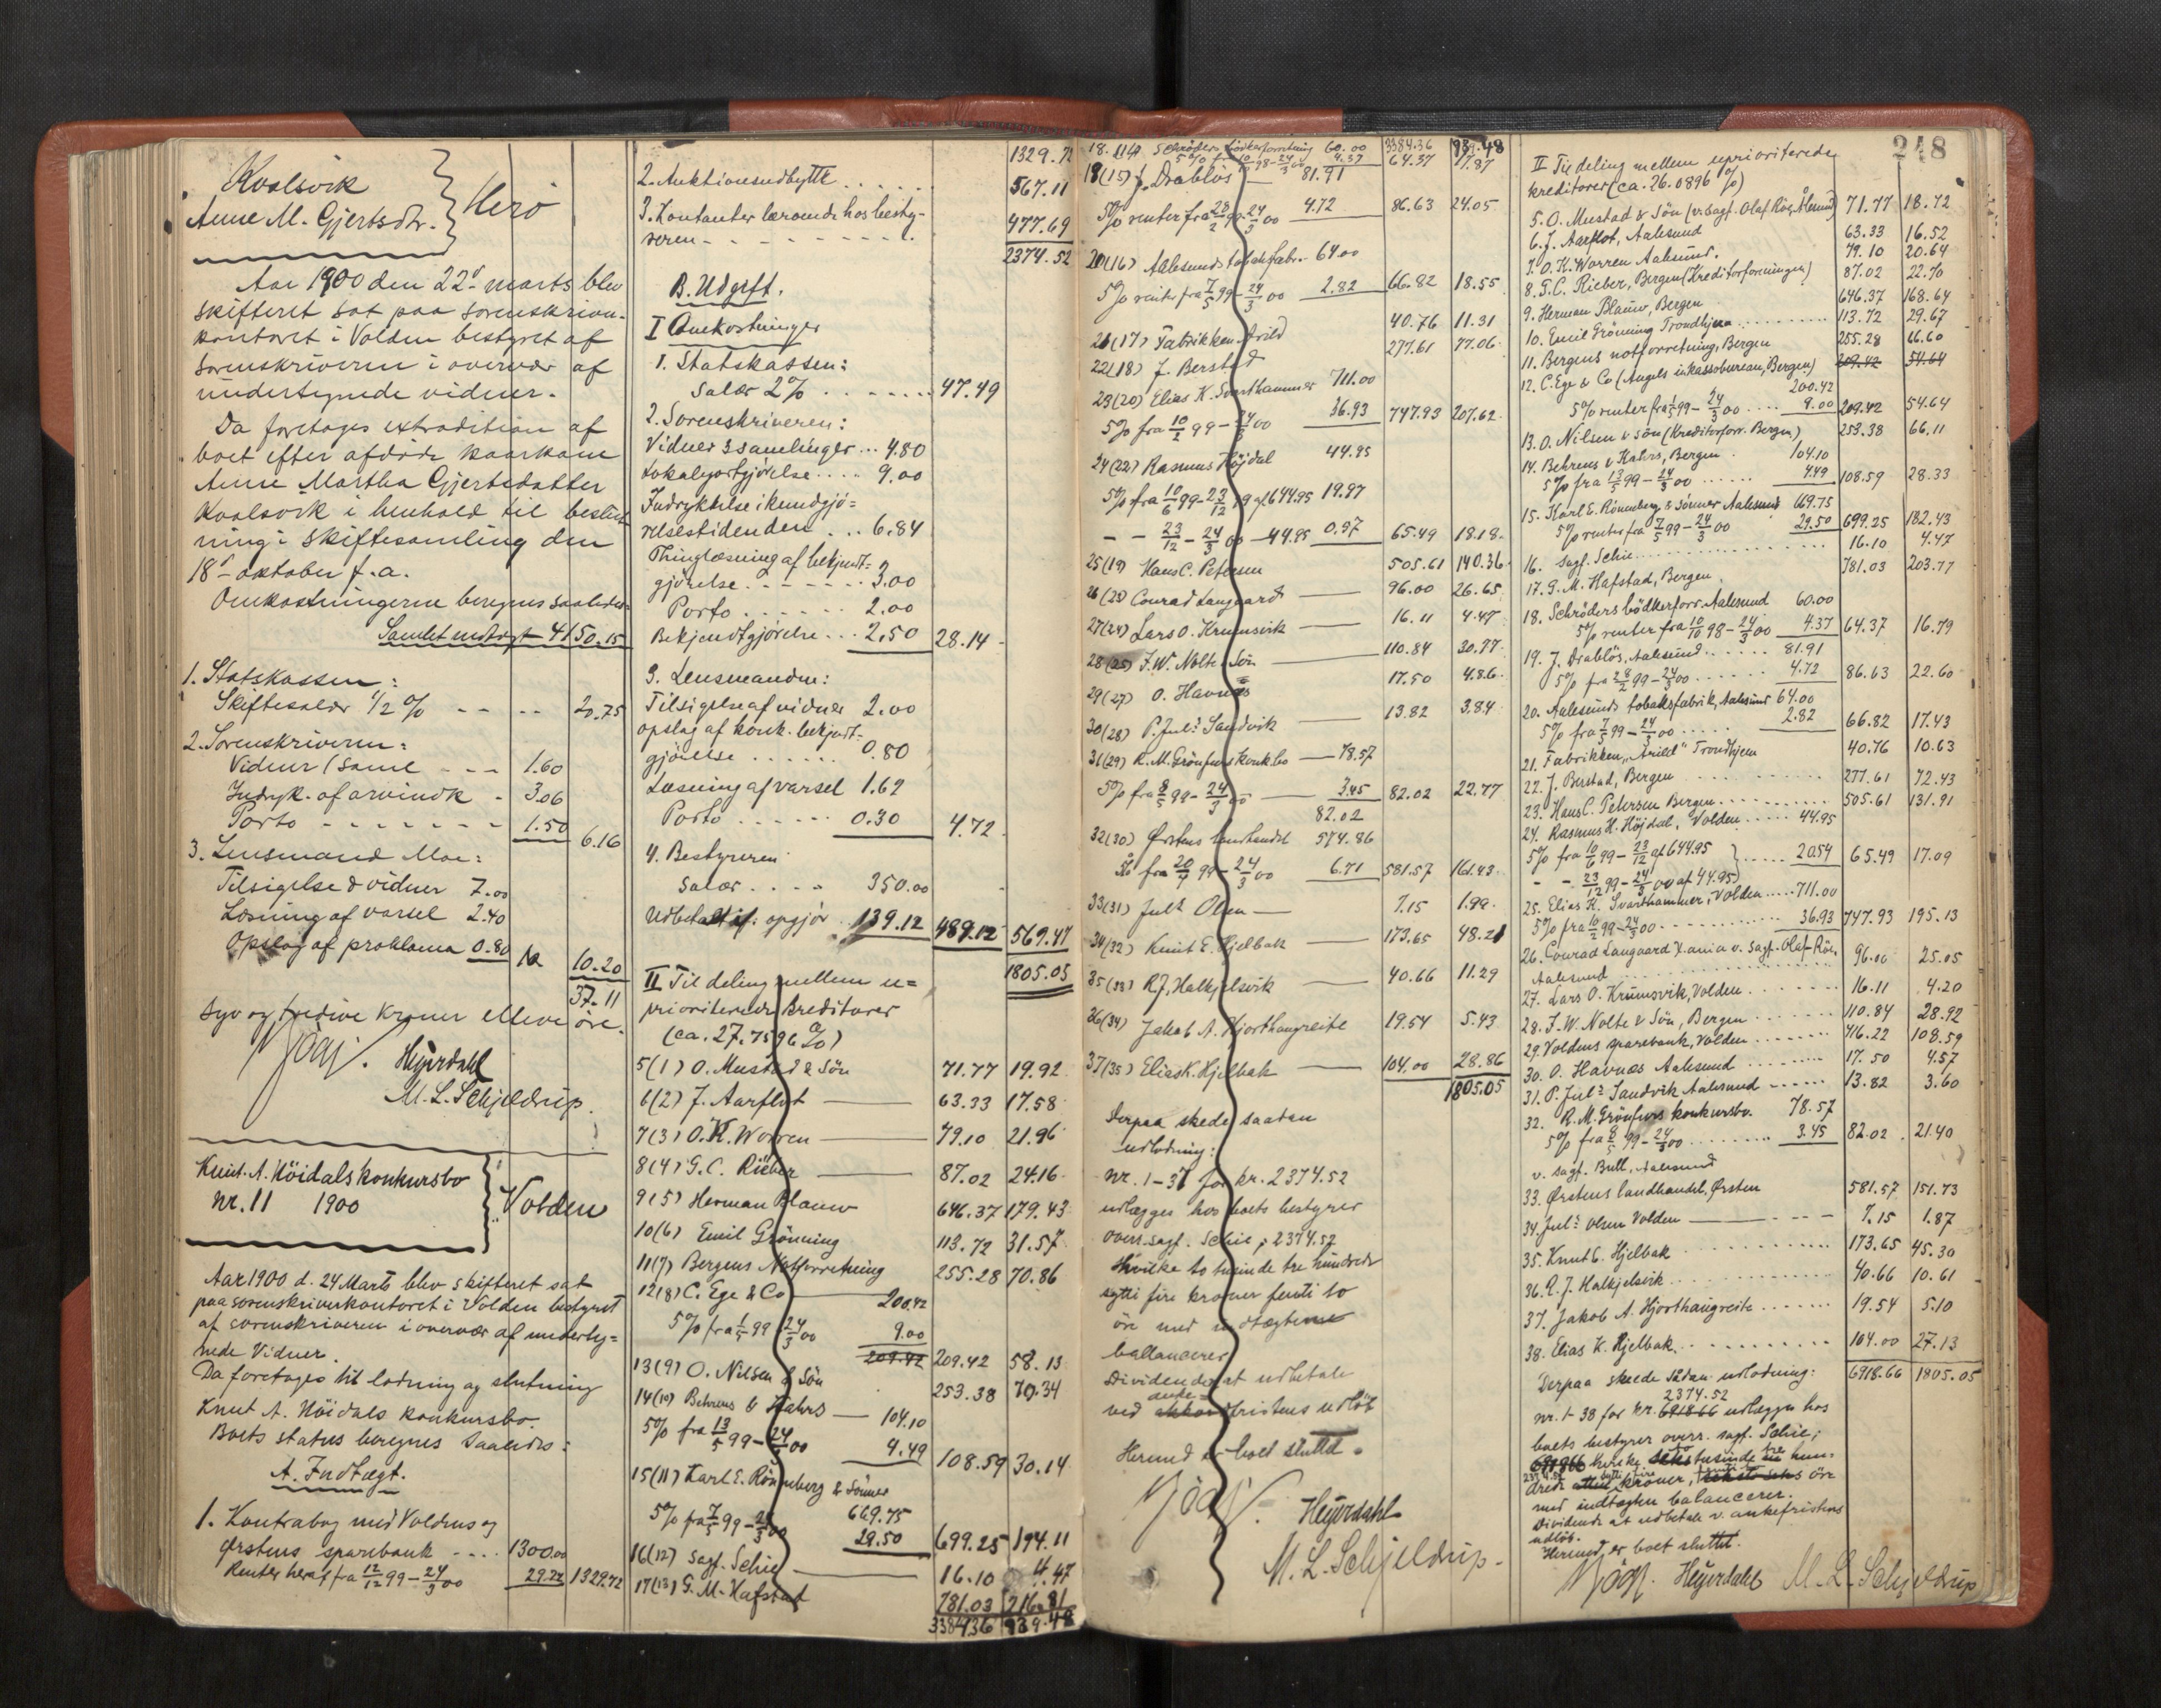 Kvalsvik
Anne M. Gjertsdtr.
Herö
Aar 1900 den 22d marts blev
skifteret sat paa sorenskriver-
kontoret i Volden bestyret af
sorenskriveren i overvær af
undertegnede vidner.
Da foretages extradition af
boet efter afdöde kaarkone
Anne Martha Gjertsdatter
Kvalsvik i henhold til beslut-
ning i skiftesamling den
18d oktober f.a.
Omkostningerne beregnes saaledes:
Samlet indtægt 4150.15
1. Statskassen:
Skiftesalær 1/2 % - - -- 20.75
2. Sorenskriveren:
Vidner 1 saml - - - 1.60
Indryk. af arvindk - 3.06
Porto - - - - - - - 1.50 6.16
3. Lensmand Moe:
Tilsigelse & vidner 7.00
Læsning af varsel 2.40
Opslag af proklama 0.80 10.20
37.11
syv og tredive kroner elleve öre.
Heyerdahl
M. L. Schjeldrup.
Knut. A. Höidals konkursbo
nr. 11 1900
Volden
Aar 1900 d. 24 Marts blev skifteret sat
paa sorenskriverkontoret i Volden bestyret
af sorenskriveren i overvær af underteg=
nede Vidner.
Da foretages til lodning og slutning
Knut A. Höidals konkursbo.
Boets status beregnes saaledes:
A. Indtægt.
1. Kontrabog med Voldens og
Ørstens sparebank - ... 1300.00
Renter heraf fra 12/12 99 - 24/3 00 29.72 1329.72
1329.72
2. Auktionsudbytte . . . . . 567.11
3. Kontanter beroende hos besty-
reren - - - - - - - - - 477.69
2374.52
B. Udgift.
I Omkostninger
1. Statskassen:
Salær 2% . . . . . . . 47.49
2. Sorenskriveren:
Vidner 3 samlinger ... 4.80
Lokalgodtgjörelse .... 9.00
Indrykkelse i kundgjö-
relsestidenden . .. 6.84
Thinglæsning af bekjendt-
gjörelse . - - - - - - 3.00
Porto . . . . . . . 2.00
Bekjendtgjörelse ... 2.50 28.14
3. Lensmanden:
Tilsigelse af vidner 2.00
opslag af konk. bekjendt-
gjörelse . . . . . . 0.80
Læsning af varsel 1.62
Porto . . . . . . 0.30 4.72
4. Bestyreren
salær . . . . 350.00
Udbetalt if. opgjör 139.12 489.12 569.47
1805.05
II Til deling mellem u=
prioriterede kreditorer
(ca. 27.7596 %)
5(1) O. Mustad & Sön 71.77 19.92
6(2) J. Aarflot 63.33 17.58
7(3) O. K. Worren 79.10 21.96
8(4) G. C. Rieber 87.02 24.16
9(5) Herman Blauw 646.37 179.43
10(6) Emil Grönning 113.72 31.57
11(7) Bergens Notforretning 255.28 70.86
12(8) C. Ege & Co 200.42
5% fra 1/5 99 - 24/3 00 9.00
209.42 209.42 58.13
13(9) O. Nilsen & Sön 253.38 70.34
14(10) Behrens & Kahrs 104.10
5% fra 13/5 99 - 24/3 00 4.49 108.59 30.14
15(11) Karl E. Rönneberg & Sönner
669.75
5% fra 7/5 99 - 24/3 00 29.50 699.25 194.11
16(12) Sagf. Schie 16.10 4.47
17(13) G. M. Hafstad 781.03 216.81
3384.36 939.48
3384.36 939.48
18. (14) Schröders bödkerforretning 60.00
5% fra 10/10 98 - 24/3 00 4.37 64.37 17.87
19(15) J. Drablös 81.91
5% renter fra 28/2 99 - 24/3 00 4.72 86.63 24.05
20(16) Aalesunds tobaksfabr. 64.00
5% renter fra 7/5 99 - 24/3 00 2.82 66.82 18.55
21(17) Fabrikken Arild 40.76 11.31
22(18) J. Berstad 277.61 77.06
23(20) Elias K. Svarthammer 711.00
5% fra 10/2 99 - 24/3 00 36.93 747.93 207.62
24(22) Rasmus Höjdal 44.95
5% fra 10/6 99 - 23/12 99 af 644.95 19.97
- - 23/12 - 24/3 00 - 44.95 0.57 65.49 18.18
25(19) Hans C. Petersen 505.61 140.36
26(23) Conrad Langaard 96.00 26.65
27(24) Lars O. Krumsvik 16.11 4.47
28(25) F. W. Nolte & Sön 110.84 30.77
29(27) O. Havnæs 17.50 4.86
30(28) P. Juls Sandvik 13.82 3.84
31(29) R. M. Grönfurs konk.bo 78.57
5% fra 8/5 99 - 24/3 00 3.45 82.02 22.77
82.02
32(30) Ørstens landhandel 574.86
fra 20/7 99 - 24/3 00 6.71 581.57 161.43
33(31) Juls Olsen 7.15 1.99
34(32) Knut E. Hjelbak 173.65 48.21
35(33) R. J. Halkjelsvik 40.66 11.29
36(34) Jakob A. Hjorthaugreite 19.54 5.43
37(35) Elias K. Hjelbak 104.00 28.86
1805.05
Derpaa skede saadan
udlodning:
nr. 1-37 for kr. 2374.52
udlægges hos boets bestyrer
overr.sagf. Schie; 2374.52
hvilke to tusinde tre hundrede
sytti fire kroner femti to
öre med indtægterne
ballancerer
Dividende at udbetale
ved anke-fristens udlöb
Hermed er boet sluttet.
Heyerdahl
M. L. Schjeldrup.
248
II Til deling mellem uprioriterede
kreditorer (ca. 26.0896 %)
5. O. Mustad & Sön (v. sagf. Olaf Röe, Ålesund) 71.77 18.72
6. J. Aarflot, Aalesund 63.33 16.52
7. O. K. Worren Aalesund. 79.10 20.64
8. G. C. Rieber, Bergen (Kreditorforeningen) 87.02 22.70
9. Herman Blauw, Bergen 646.37 168.64
10. Emil Gröning Trondhjem .......... 113.72 29.67
11. Bergens notforretning, Bergen 255.28 66.60
12. C. Ege & Co (Angels inkassobureau, Bergen) 209.42 54.64
200.42
5% renter fra 1/5 99 - 24/3 00 .... 9.00 209.42 54.64
13. O. Nilsen & sön (Kreditorforr. Bergen) 253.38 66.11
14. Behrens & Kahrs, Bergen . 104.10
5% fra 13/5 99 - 24/3 00 ...... 4.49 108.59 28.33
15. Karl E. Rönneberg & Sönner Aalesund 669.75
5% renter fra 7/5 99 - 24/3 00 29.50 699.25 182.43
16. sagf. Schie .................. 16.10 4.47
17. G. M. Hafstad, Bergen. 781.03 203.77
18. Schröders bödkerforr. Aalesund 60.00
5% renter fra 10/10 98 - 24/3 00 4.37 64.37 16.79
19. J. Drablös, Aalesund ...... 81.91
5% fra 28/2 99 - 24/3 00 ...... 4.72 86.63 22.60
20. Aalesunds tobaksfabrik, Aalesund 64.00
5% fra 7/5 99 - 24/3 00 ..... 2.82 66.82 17.43
21. Fabrikken "Arild" Trondhjem 40.76 10.63
22. J. Berstad, Bergen 277.61 72.43
23. Hans C. Petersen Bergen ......... 505.61 131.91
24. Rasmus K. Höjdal, Volden ..... 44.95
5% fra 10/6 99 - 23/12 af 644.95
- - 23/12 99 - 24/3 00 af 44.95 ..... 20.54 65.49 17.09
25. Elias K. Svarthammer, Volden ..... 711.00
5% fra 10/2 99 - 24/3 00 ......... 36.93 747.93 195.13
26. Conrad Langaard X.ania v. sagf. Olaf Röe,
Aalesund .................. 96.00 25.05
27. Lars O. Krumsvik, Volden ........ 16.11 4.20
28. F. W. Nolte & Sön, Bergen ....... 110.84 28.92
29. Voldens sparebank, Volden ....... 416.22 108.59
30. O. Havnæs Aalesund ........ 17.50 4.57
31. P. Juls Sandvik Aalesund ...... 13.82 3.60
32. R. M. Grönfurs konkursbo. 78.57
5% fra 8/5 99 - 24/3 00 ......... 3.45 82.02 21.40
v. sagf. Bull, Aalesund
33. Ørstens landhandel, Ørsten 581.57 151.73
34. Juls Olsen Volden 7.15 1.87
35. Knut E. Hjelbak 173.65 45.30
36. R. J. Halkjelsvik 40.66 10.61
37. Jakob A. Hjorthaugreite ....... 19.54 5.10
38. Elias K. Hjelbak .............. 104.00 27.13
6918.66 1805.05
Derpaa skede sådan udlodning:
2374.52
nr. 1-38 for kr. 6918.66 udlægges hos
boets bestyrer overr. sagf. Schie;
6918.66 hvilke seks to tusinde tre hun-
2374.52 sytti fire
drede atten kroner, öre
med indtægten balancerer.
Dividende at udbetale v. ankefristens
udlöb.
Hermed er boet sluttet.
Heyerdahl M. L. Schjeldrup